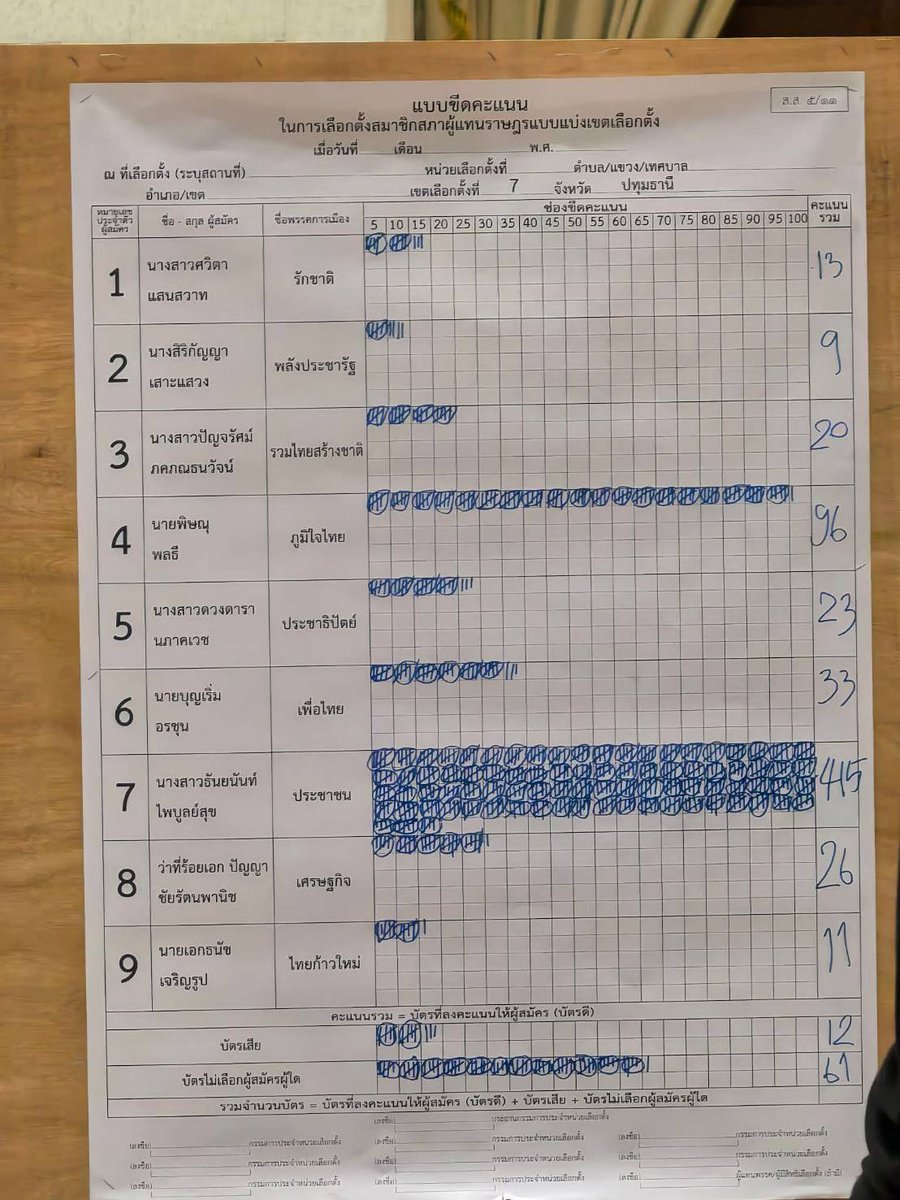 แบบขีดคะแนน
ส.ส. ๕/๑๑
ในการเลือกตั้งสมาชิกสภาผู้แทนราษฎรแบบแบ่งเขตเลือกตั้ง
เมื่อวันที่ เดือน พ.ศ.
ณ ที่เลือกตั้ง (ระบุสถานที่) หน่วยเลือกตั้งที่ ตำบล/แขวง/เทศบาล
อำเภอ/เขต เขตเลือกตั้งที่ 7 จังหวัด ปทุมธานี
หมายเลขประจำตัวผู้สมัคร ชื่อ - สกุล ผู้สมัคร ชื่อพรรคการเมือง ช่องขีดคะแนน คะแนนรวม
5 10 15 20 25 30 35 40 45 50 55 60 65 70 75 80 85 90 95 100
1 นางสาวศวิตา แสนสวาท รักชาติ 13
2 นางสิริกัญญา เสาะแสวง พลังประชารัฐ 9
3 นางสาวปัญจรัศม์ ภคภณธนวัจน์ รวมไทยสร้างชาติ 20
4 นายพิษณุ พลธี ภูมิใจไทย 96
5 นางสาวดวงดารา นภาคเวช ประชาธิปัตย์ 23
6 นายบุญเริ่ม อรชุน เพื่อไทย 33
7 นางสาวธันยนันท์ ไพบูลย์สุข ประชาชน 415
8 ว่าที่ร้อยเอก ปัญญา ชัยรัตนพานิช เศรษฐกิจ 26
9 นายเอกธนัช เจริญรูป ไทยก้าวใหม่ 11
คะแนนรวม = บัตรที่ลงคะแนนให้ผู้สมัคร (บัตรดี)
บัตรเสีย 12
บัตรไม่เลือกผู้สมัครผู้ใด 61
รวมจำนวนบัตร = บัตรที่ลงคะแนนให้ผู้สมัคร (บัตรดี) + บัตรเสีย + บัตรไม่เลือกผู้สมัครผู้ใด
(ลงชื่อ) ประธานกรรมการประจำหน่วยเลือกตั้ง
(ลงชื่อ) กรรมการประจำหน่วยเลือกตั้ง (ลงชื่อ) กรรมการประจำหน่วยเลือกตั้ง (ลงชื่อ) กรรมการประจำหน่วยเลือกตั้ง
(ลงชื่อ) กรรมการประจำหน่วยเลือกตั้ง (ลงชื่อ) กรรมการประจำหน่วยเลือกตั้ง (ลงชื่อ) กรรมการประจำหน่วยเลือกตั้ง
(ลงชื่อ) กรรมการประจำหน่วยเลือกตั้ง (ลงชื่อ) กรรมการประจำหน่วยเลือกตั้ง (ลงชื่อ) ผู้แทนพรรค/ผู้มีสิทธิเลือกตั้ง (ถ้ามี)